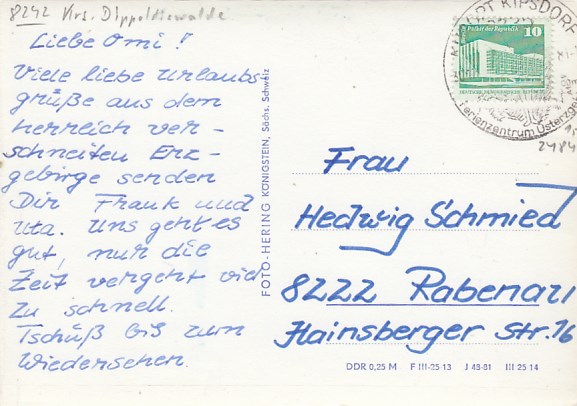 8242 Krs. Dippoldiswalde
Liebe Omi!
Viele liebe Urlaubs-
grüße aus dem
herrlich ver-
schneiten Erz-
gebirge senden
Dir Frank und
Uta. Uns geht es
gut, nur die
Zeit vergeht viel
zu schnell.
Tschüß bis zum
Wiedersehen.
FOTO-HERING KÖNIGSTEIN, Sächs. Schweiz
KURORT KIPSDORF
Ferienzentrum Osterzgeb
Palast der Republik
10
Frau
Hedwig Schmied
8222 Rabenau
Hainsberger Str. 16
DDR 0,25 M F III-25-13 J 48-81 III 25 14